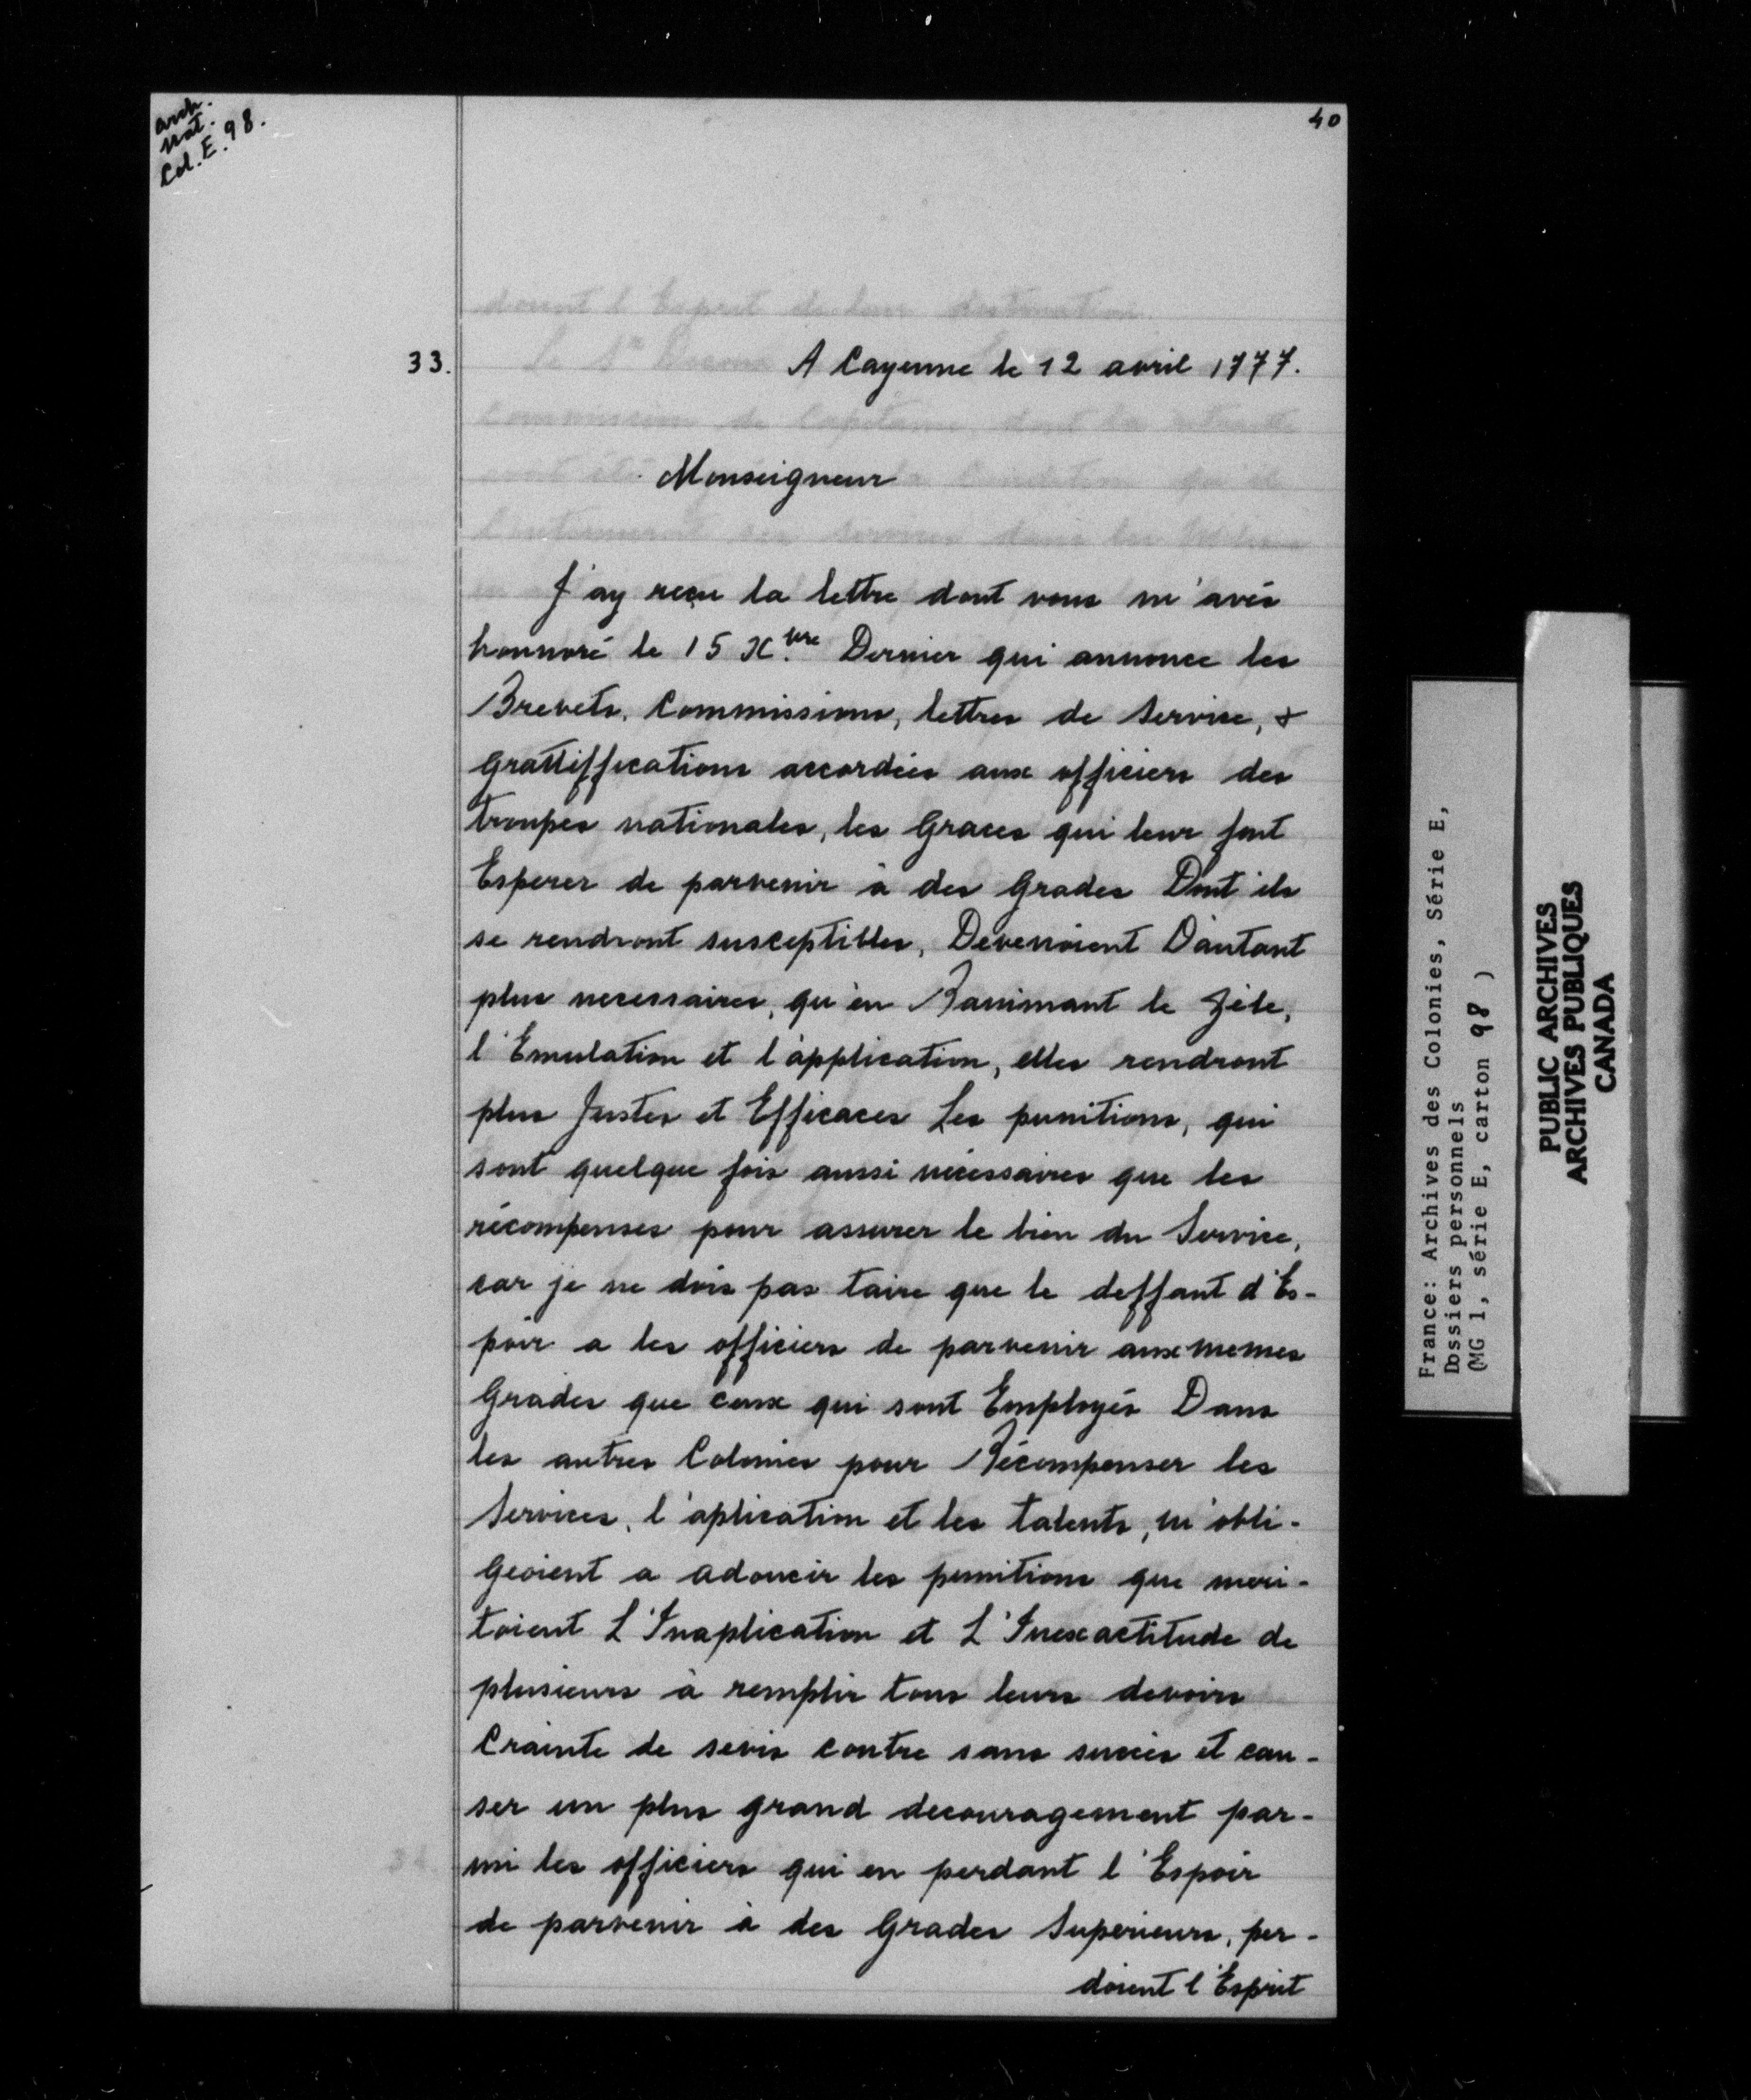 arch.
nat.
Col. E. 98.
40
33.
A Cayenne le 12 avril 1777.
Monseigneur
J'ay reçu la lettre dont vous m'avés
honnoré le 15 Xbre Dernier qui annonce les
Brevets, Commissions, lettres de Service, &
Grattiffications accordées aux officiers des
troupes nationales, les Graces qui leur font
Esperer de parvenir à des Grades Dont ils
se rendront susceptibles, Devenoient D'autant
plus necessaires, qu'en Ranimant le Zéle,
l'Emulation et l'application, elles rendront
plus Justes et Efficaces Les punitions, qui
sont quelque fois aussi nécessaires que les
récompenses pour assurer le bien du Service,
car je ne dois pas taire que le deffaut d'Es-
poir a les officiers de parvenir aux memes
Grades que ceux qui sont Employés Dans
les autres Colonies pour Récompenser les
Services, l'aplication et les talents, m'obli-
Geoient a adoucir les punitions que meri-
toient L'Inaplication et L'Inexactitude de
plusieurs à remplir tous leurs devoirs
Crainte de sevir contre sans succès et cau-
ser un plus grand decouragement par-
mi les officiers qui en perdant l'Espoir
de parvenir à des Grades Superieurs, per-
doient l'Esprit
France: Archives des Colonies, Série E,
Dossiers personnels
(MG 1, série E, carton 98 )
PUBLIC ARCHIVES
ARCHIVES PUBLIQUES
CANADA